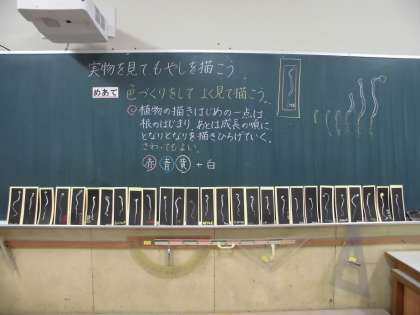 実物を見てもやしを描こう
めあて 色づくりをして よく見て描こう。
植物の描きはじめの一点は
根のはじまり。あとは成長の順に
となりとなりを描きひろげていく。
さわってもよい。
赤 青 黄 + 白